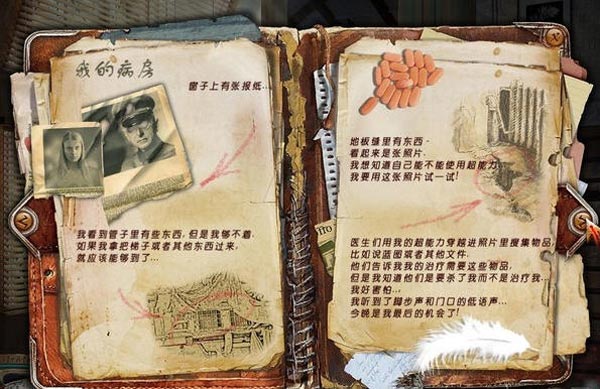 我的病房
窗子上有张报纸...
我看到管子里有些东西，但是我够不着.
如果我拿把梯子或者其他东西过来，
就应该能够到了...
地板缝里有东西-
看起来是张照片.
我想知道自己能不能使用超能力
我要用这张照片试一试!
医生们用我的超能力穿越进照片里搜集物品，
比如说蓝图或者其他文件.
他们告诉我我的治疗需要这些物品，
但是我知道他们是要杀了我而不是治疗我...
我好害怕...
我听到了脚步声和门口的低语声...
今晚是我最后的机会了!